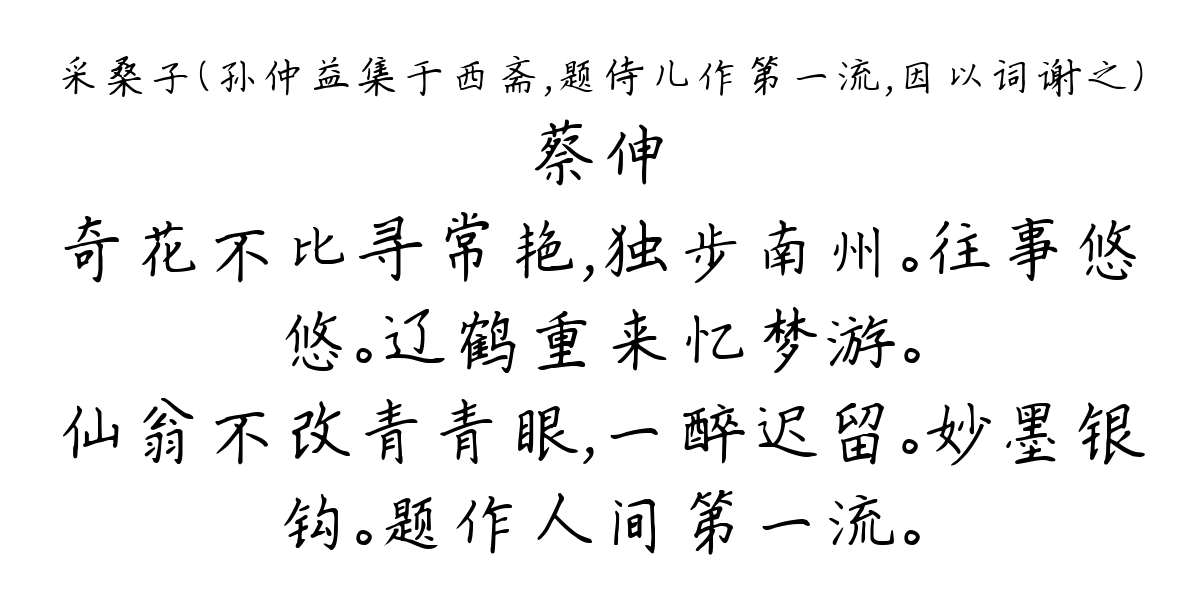 采桑子(孙仲益集于西斋,题侍儿作第一流,因以词谢之)
蔡伸
奇花不比寻常艳,独步南州。往事悠
悠。辽鹤重来忆梦游。
仙翁不改青青眼,一醉迟留。妙墨银
钩。题作人间第一流。